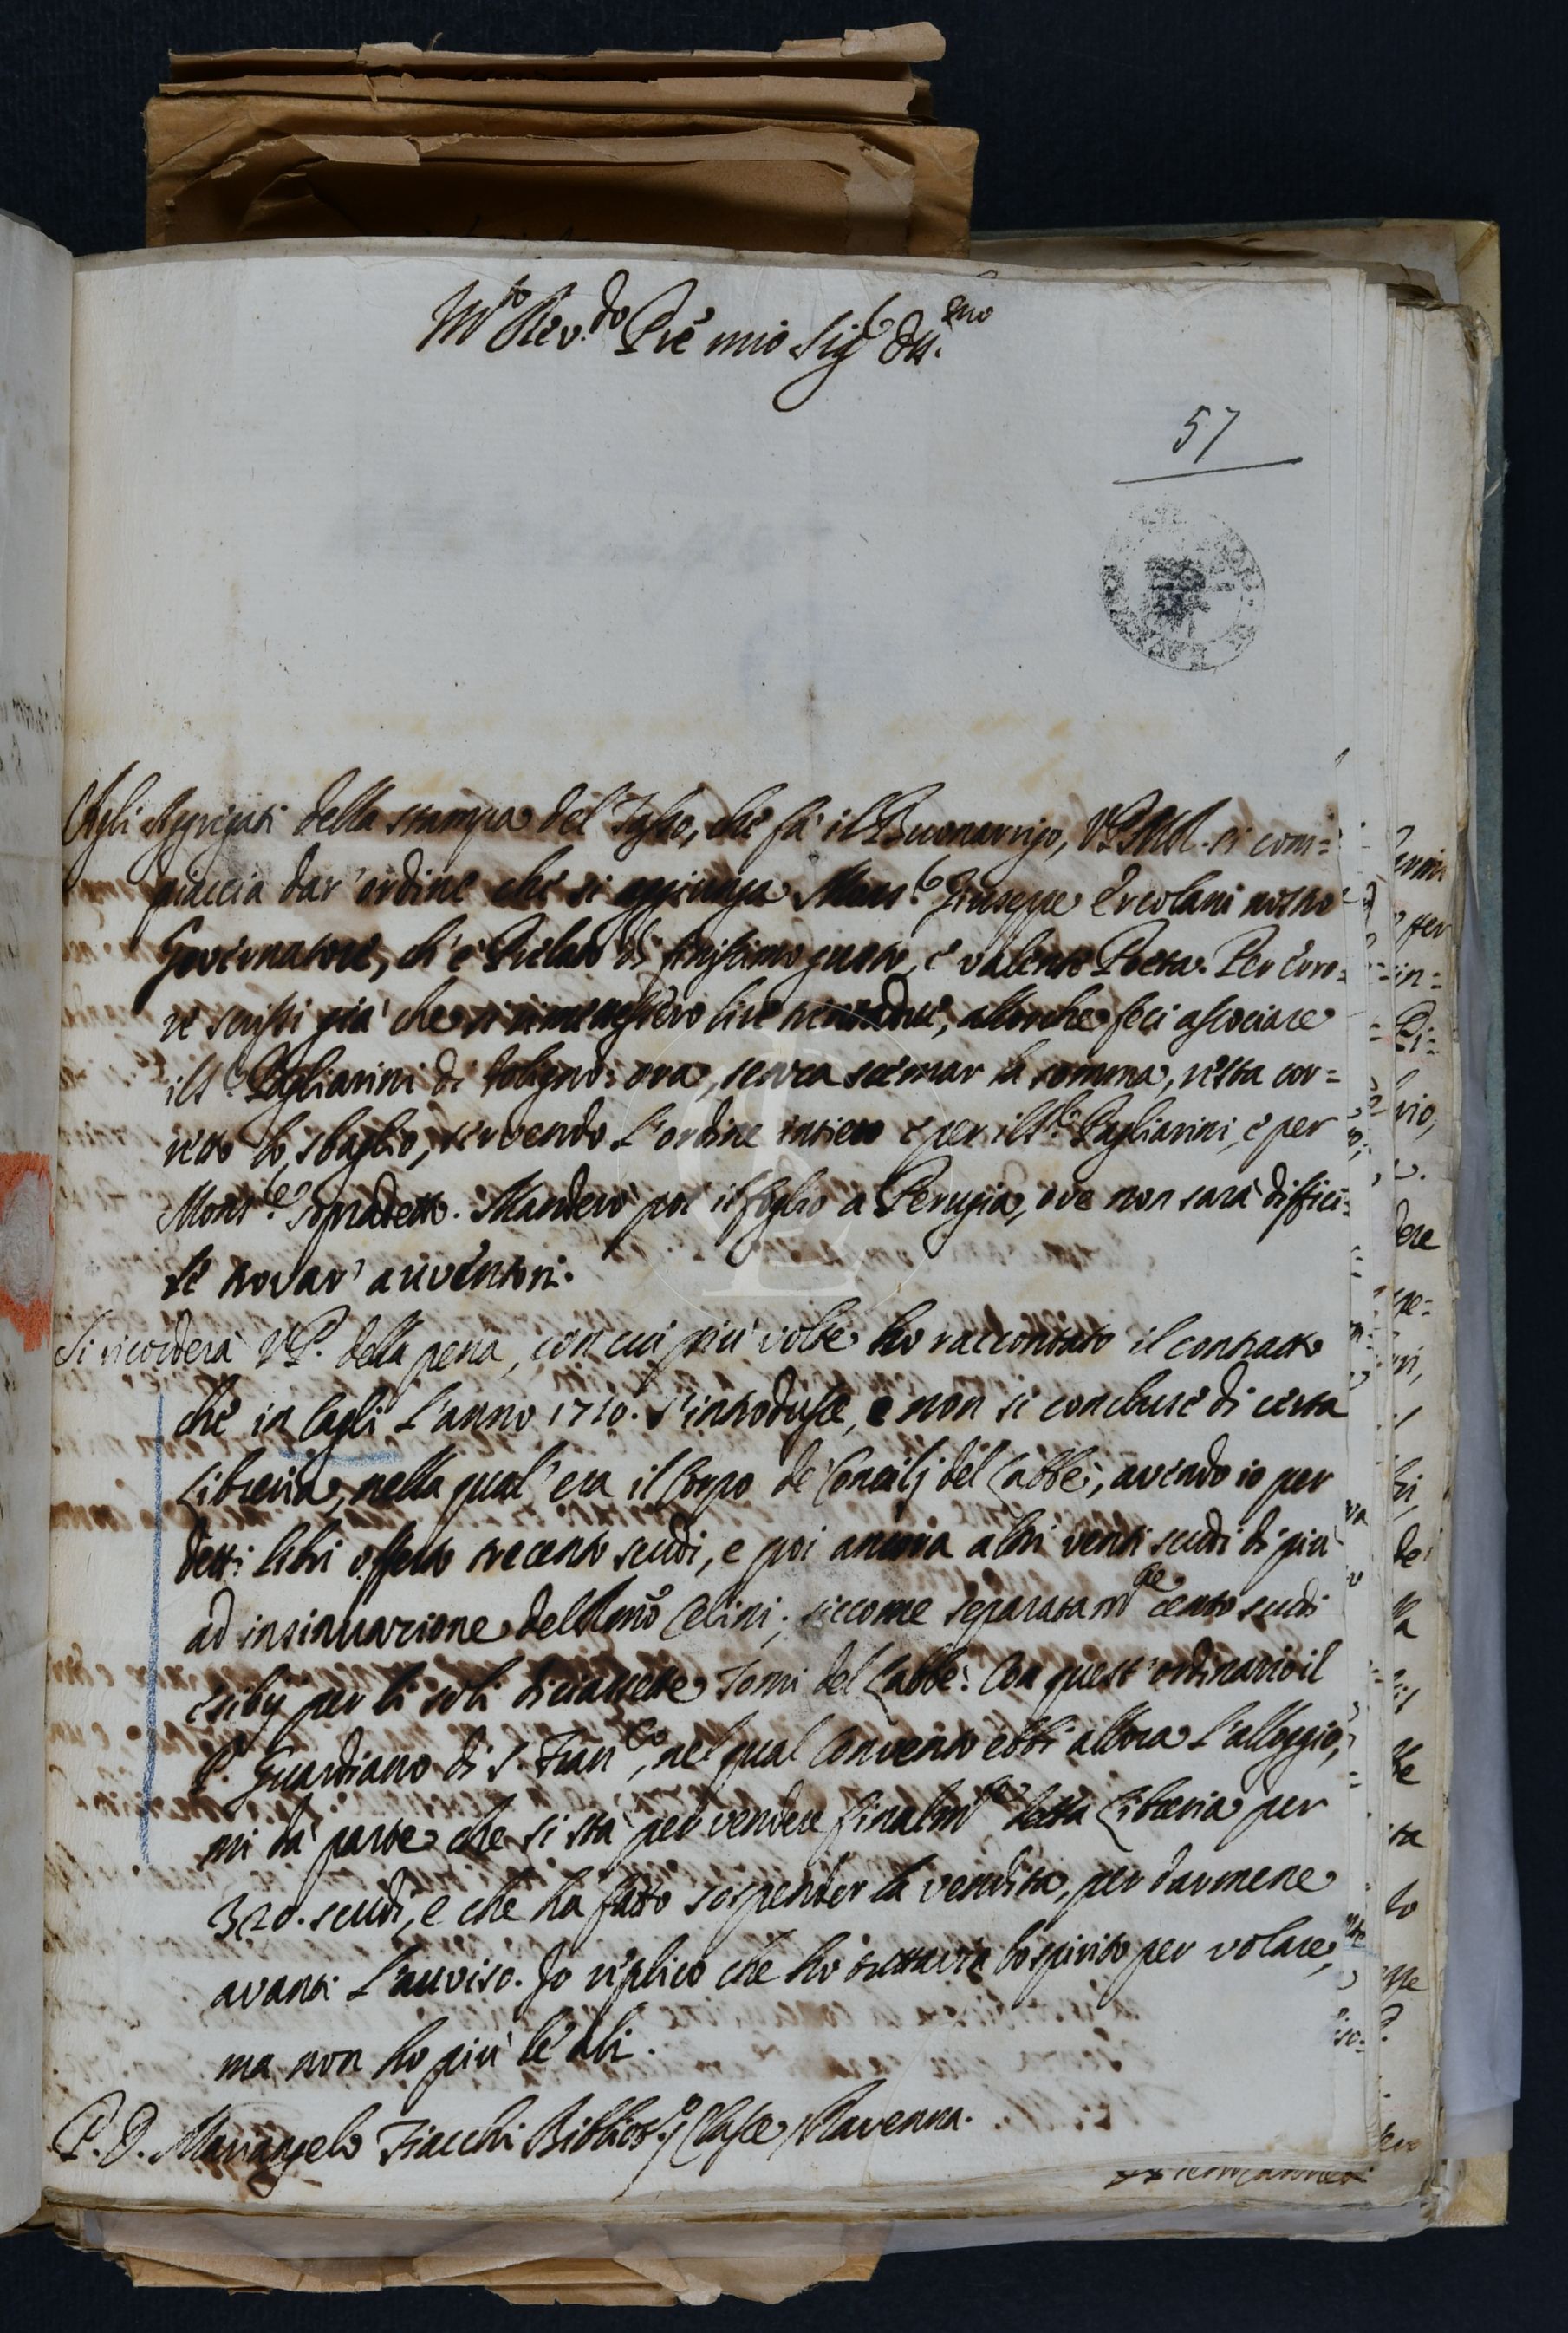 M.to Rev.do P̃re mio Sig.r Oss.mo
57
Agli Aggregati della stampa del Tasso, che fà il Buonarrigo, V.P.M.R. si com=
piaccia dar' ordine che si aggiunga Mons.r Giuseppe Ercolani nostro
Governatore, ch'è Prelato di finissimo gusto, è valente Poeta. Per erro=
re scrissi già che si rimettessero lire trentadue, allorche feci associare
il S.r Pagliarini di Foligno: ora, senza scemar la somma, resta cor=
retto lo sbaglio, servendo l'ordine intiero è per il S.r Pagliarini, è per
Mons.re sopradetto. Manderò poi il foglio a Perugia, ove non sarà diffici=
le trovar' avventori.
Si ricorderà V.P. della pena, con cui più volte ho raccontato il contratto
che in Cagli l'anno 1710. s'introdusse, e non si concluse di certa
Libreria, nella qual' era il Corpo de' Concilj del Labbè, avendo io per
detti libri offerto trecento scudi, e poi ancora altri venti scudi di più
ad insinuazione del Rm̃o Celini; siccome separatam.te cento scudi
esibij per li soli diciassette Tomi del Labbè. Con quest' ordinario il
P. Guardiano di S. Fran.co, nel qual Convento ebbi allora l'alloggio,
mi dà parte che si stà per vendere finalm.te detta Libreria per
320. scudi, e che ha fatto sospender la vendita, per darmene
avanti l'avviso. Io riplico che ho tuttavia lo spirito per volare,
ma non ho più le ali.
P.D. Mariangelo Fiacchi Bibliot.o di Classe Ravenna.